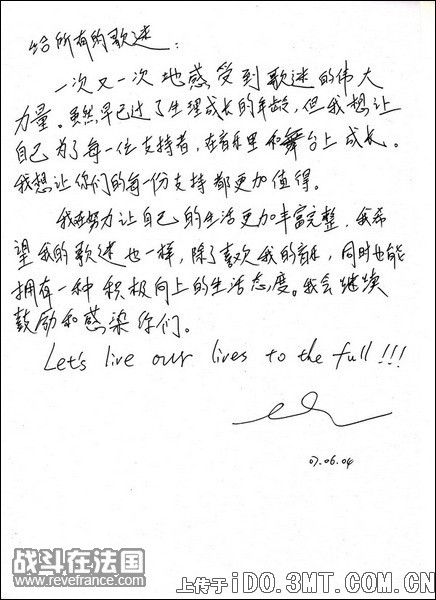 给所有的歌迷：
一次又一次地感受到歌迷的伟大
力量。虽然早已过了生理成长的年龄，但我想让
自己为了每一位支持者，在音乐里和舞台上成长。
我想让你们的每一份支持都更加值得。
我在努力让自己的生活更加丰富完整，我希
望我的歌迷也一样，除了喜欢我的音乐，同时也能
拥有一种积极向上的生活态度。我会继续
鼓励和感染你们。
Let's live our lives to the full!!!
07.06.04
战斗在法国
www.revefrance.com
上传于iDO.3MT.COM.CN